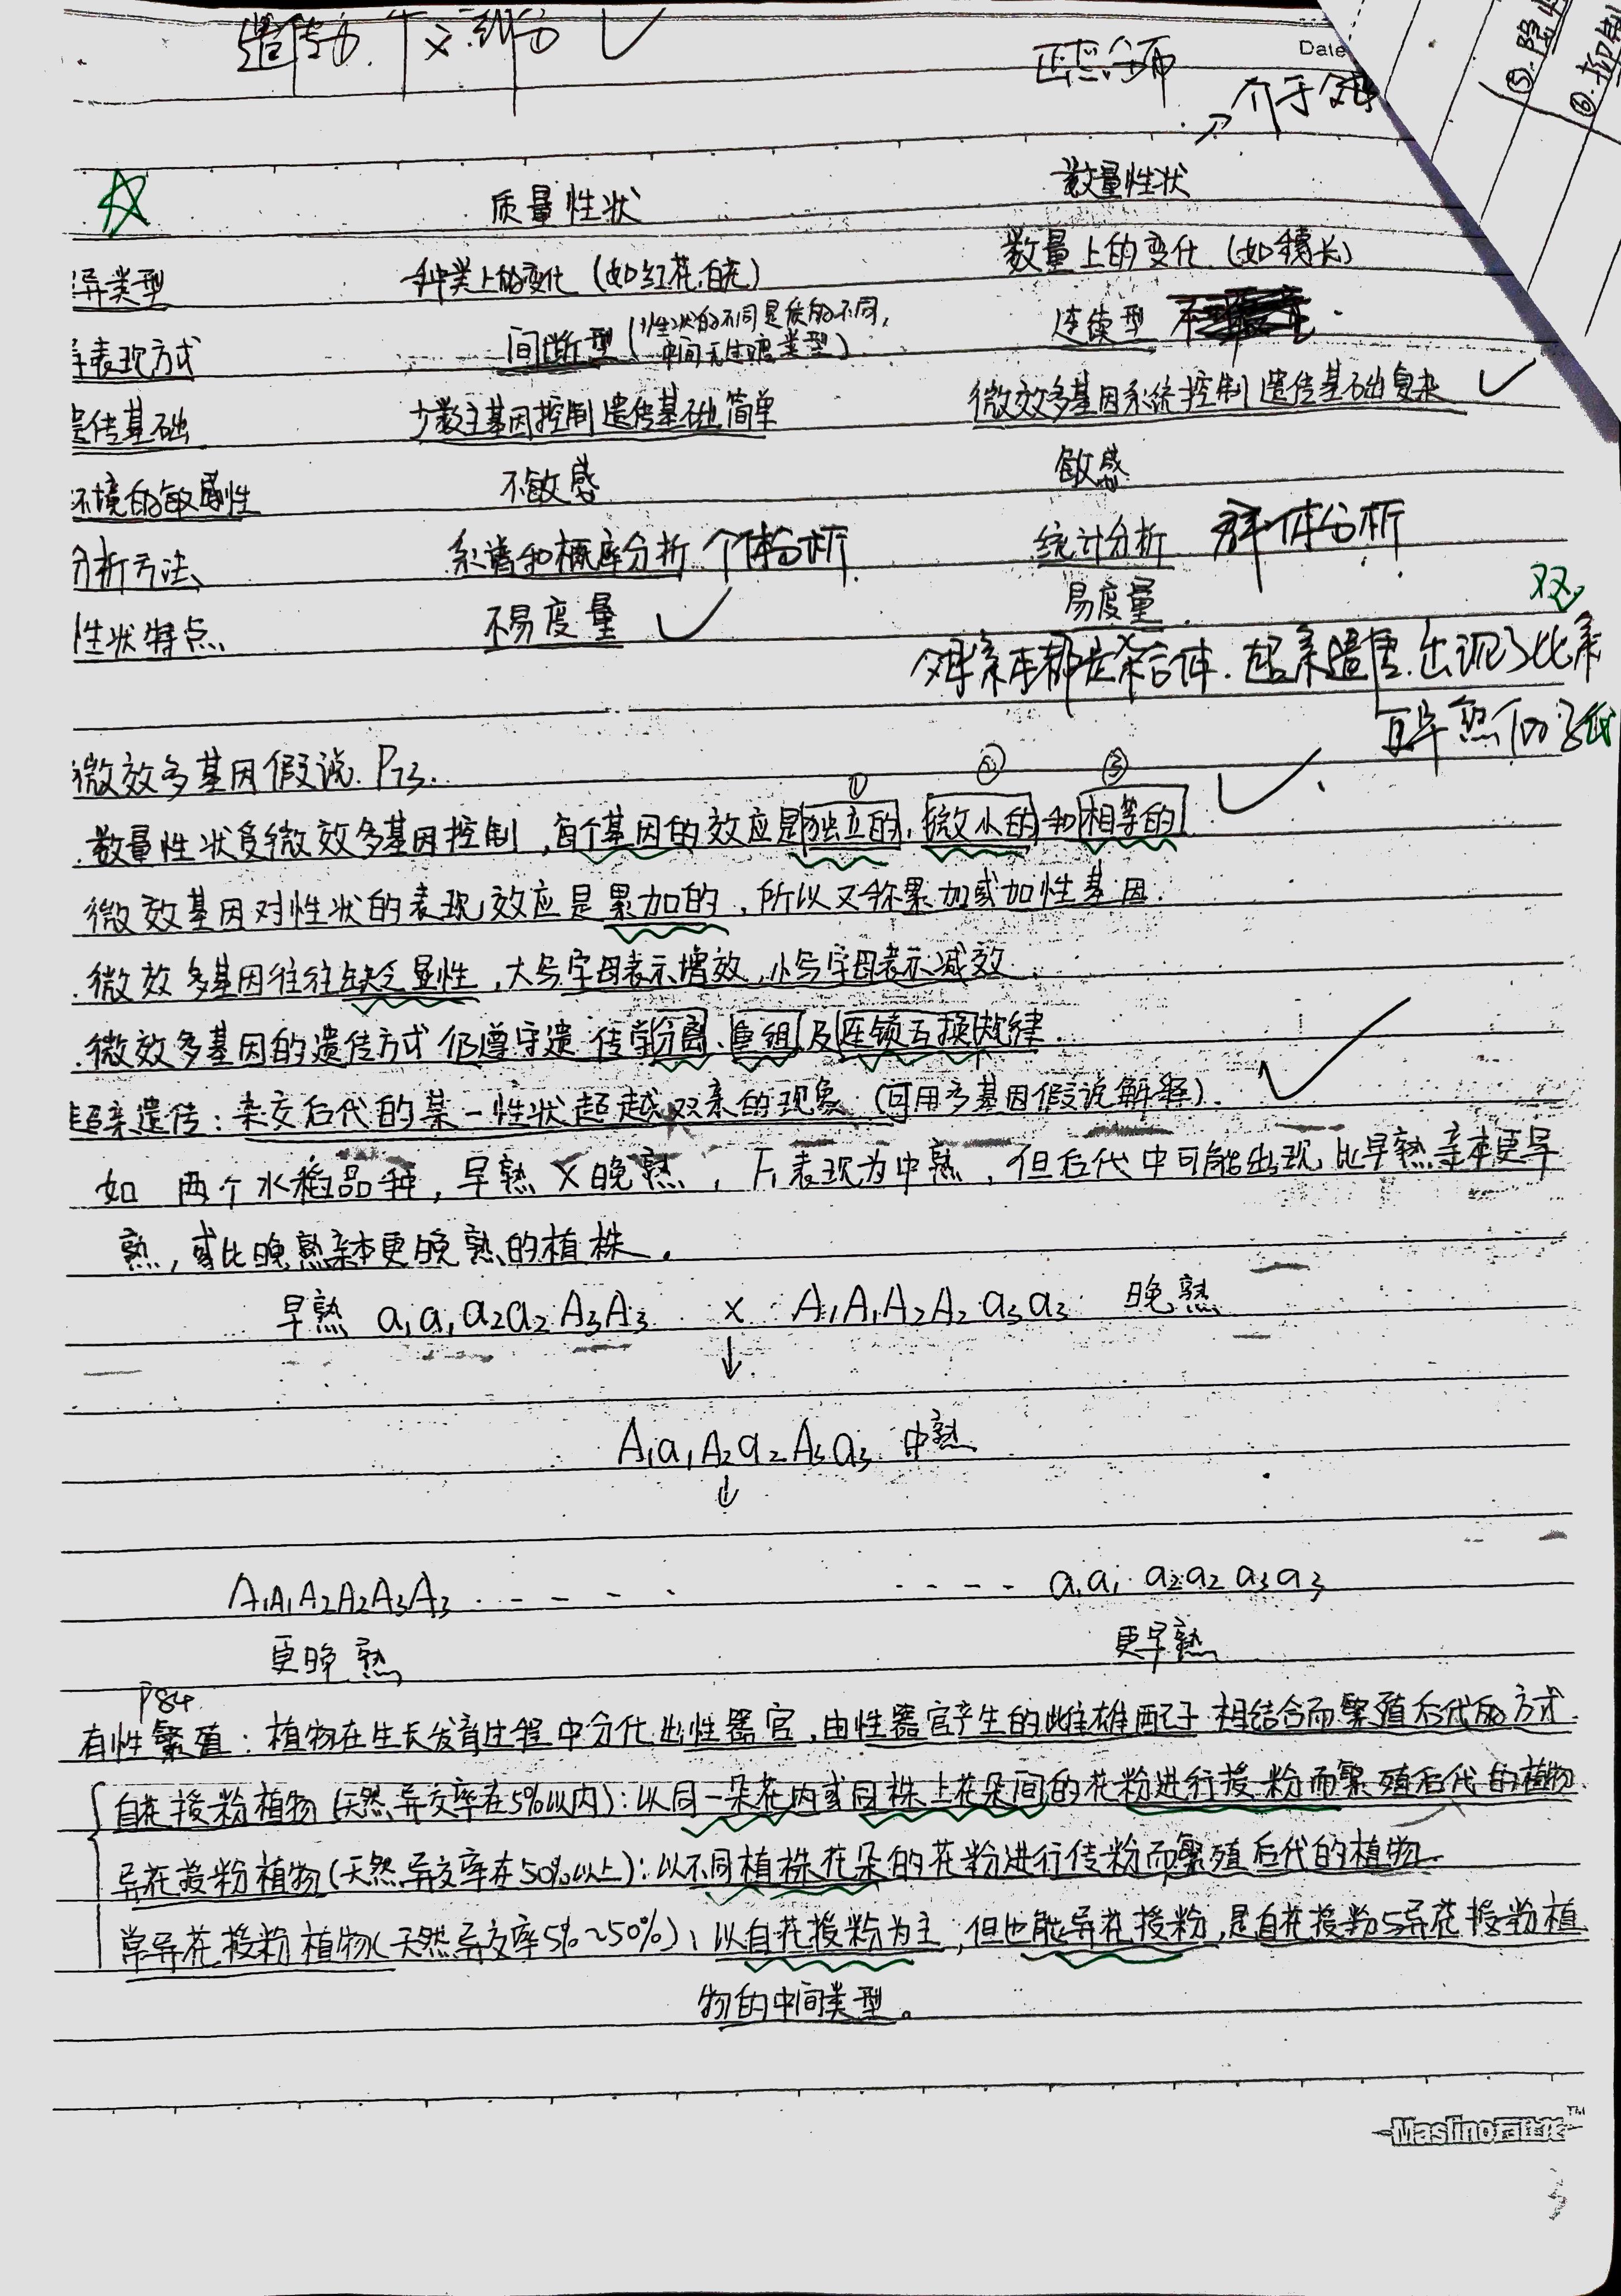 正态分布
Date
介于
质量性状 数量性状
异类型 种类上的变化(如红花.白花) 数量上的变化.(如穗长)
表现方式 间断型(性状的不同是质的不同,中间无过渡类型) 连续型
遗传基础 少数主基因控制遗传基础简单 微效多基因系统控制遗传基础复杂
环境的敏感性 不敏感 敏感
分析方法 系谱和概率分析 个体分析 统计分析 群体分析
性状特点 不易度量 易度量
双
都是杂合体.超亲遗传.出现了比亲
更早熟的子代
微效多基因假说. P73.
① ② ③
.数量性状受微效多基因控制,每个基因的效应是独立的,微小的和相等的.
微效基因对性状的表现效应是累加的,所以又称累加或加性基因.
.微效多基因往往缺乏显性,大写字母表示增效,小写字母表示减效.
.微效多基因的遗传方式仍遵守遗传学分离、重组及连锁互换规律.
超亲遗传:杂交后代的某一性状超越双亲的现象.(可用多基因假说解释).
如 两个水稻品种,早熟×晚熟,F₁表现为中熟,但后代中可能出现比早熟亲本更早
熟,或比晚熟亲本更晚熟的植株.
早熟 a₁a₁a₂a₂A₃A₃ × A₁A₁A₂A₂a₃a₃ 晚熟
↓
A₁a₁A₂a₂A₃a₃ 中熟
↓
A₁A₁A₂A₂A₃A₃ - - - - - - - - a₁a₁a₂a₂a₃a₃
更晚熟 更早熟
P84
有性繁殖:植物在生长发育过程中分化出性器官,由性器官产生的雌雄配子相结合而繁殖后代的方式.
自花授粉植物(天然异交率在5%以内):以同一朵花内或同株上花朵间的花粉进行授粉而繁殖后代的植物
异花授粉植物(天然异交率在50%以上):以不同植株花朵的花粉进行传粉而繁殖后代的植物.
常异花授粉植物(天然异交率5%~50%):以自花授粉为主,但也能异花授粉,是自花授粉与异花授粉植
物的中间类型。
Maslino
3